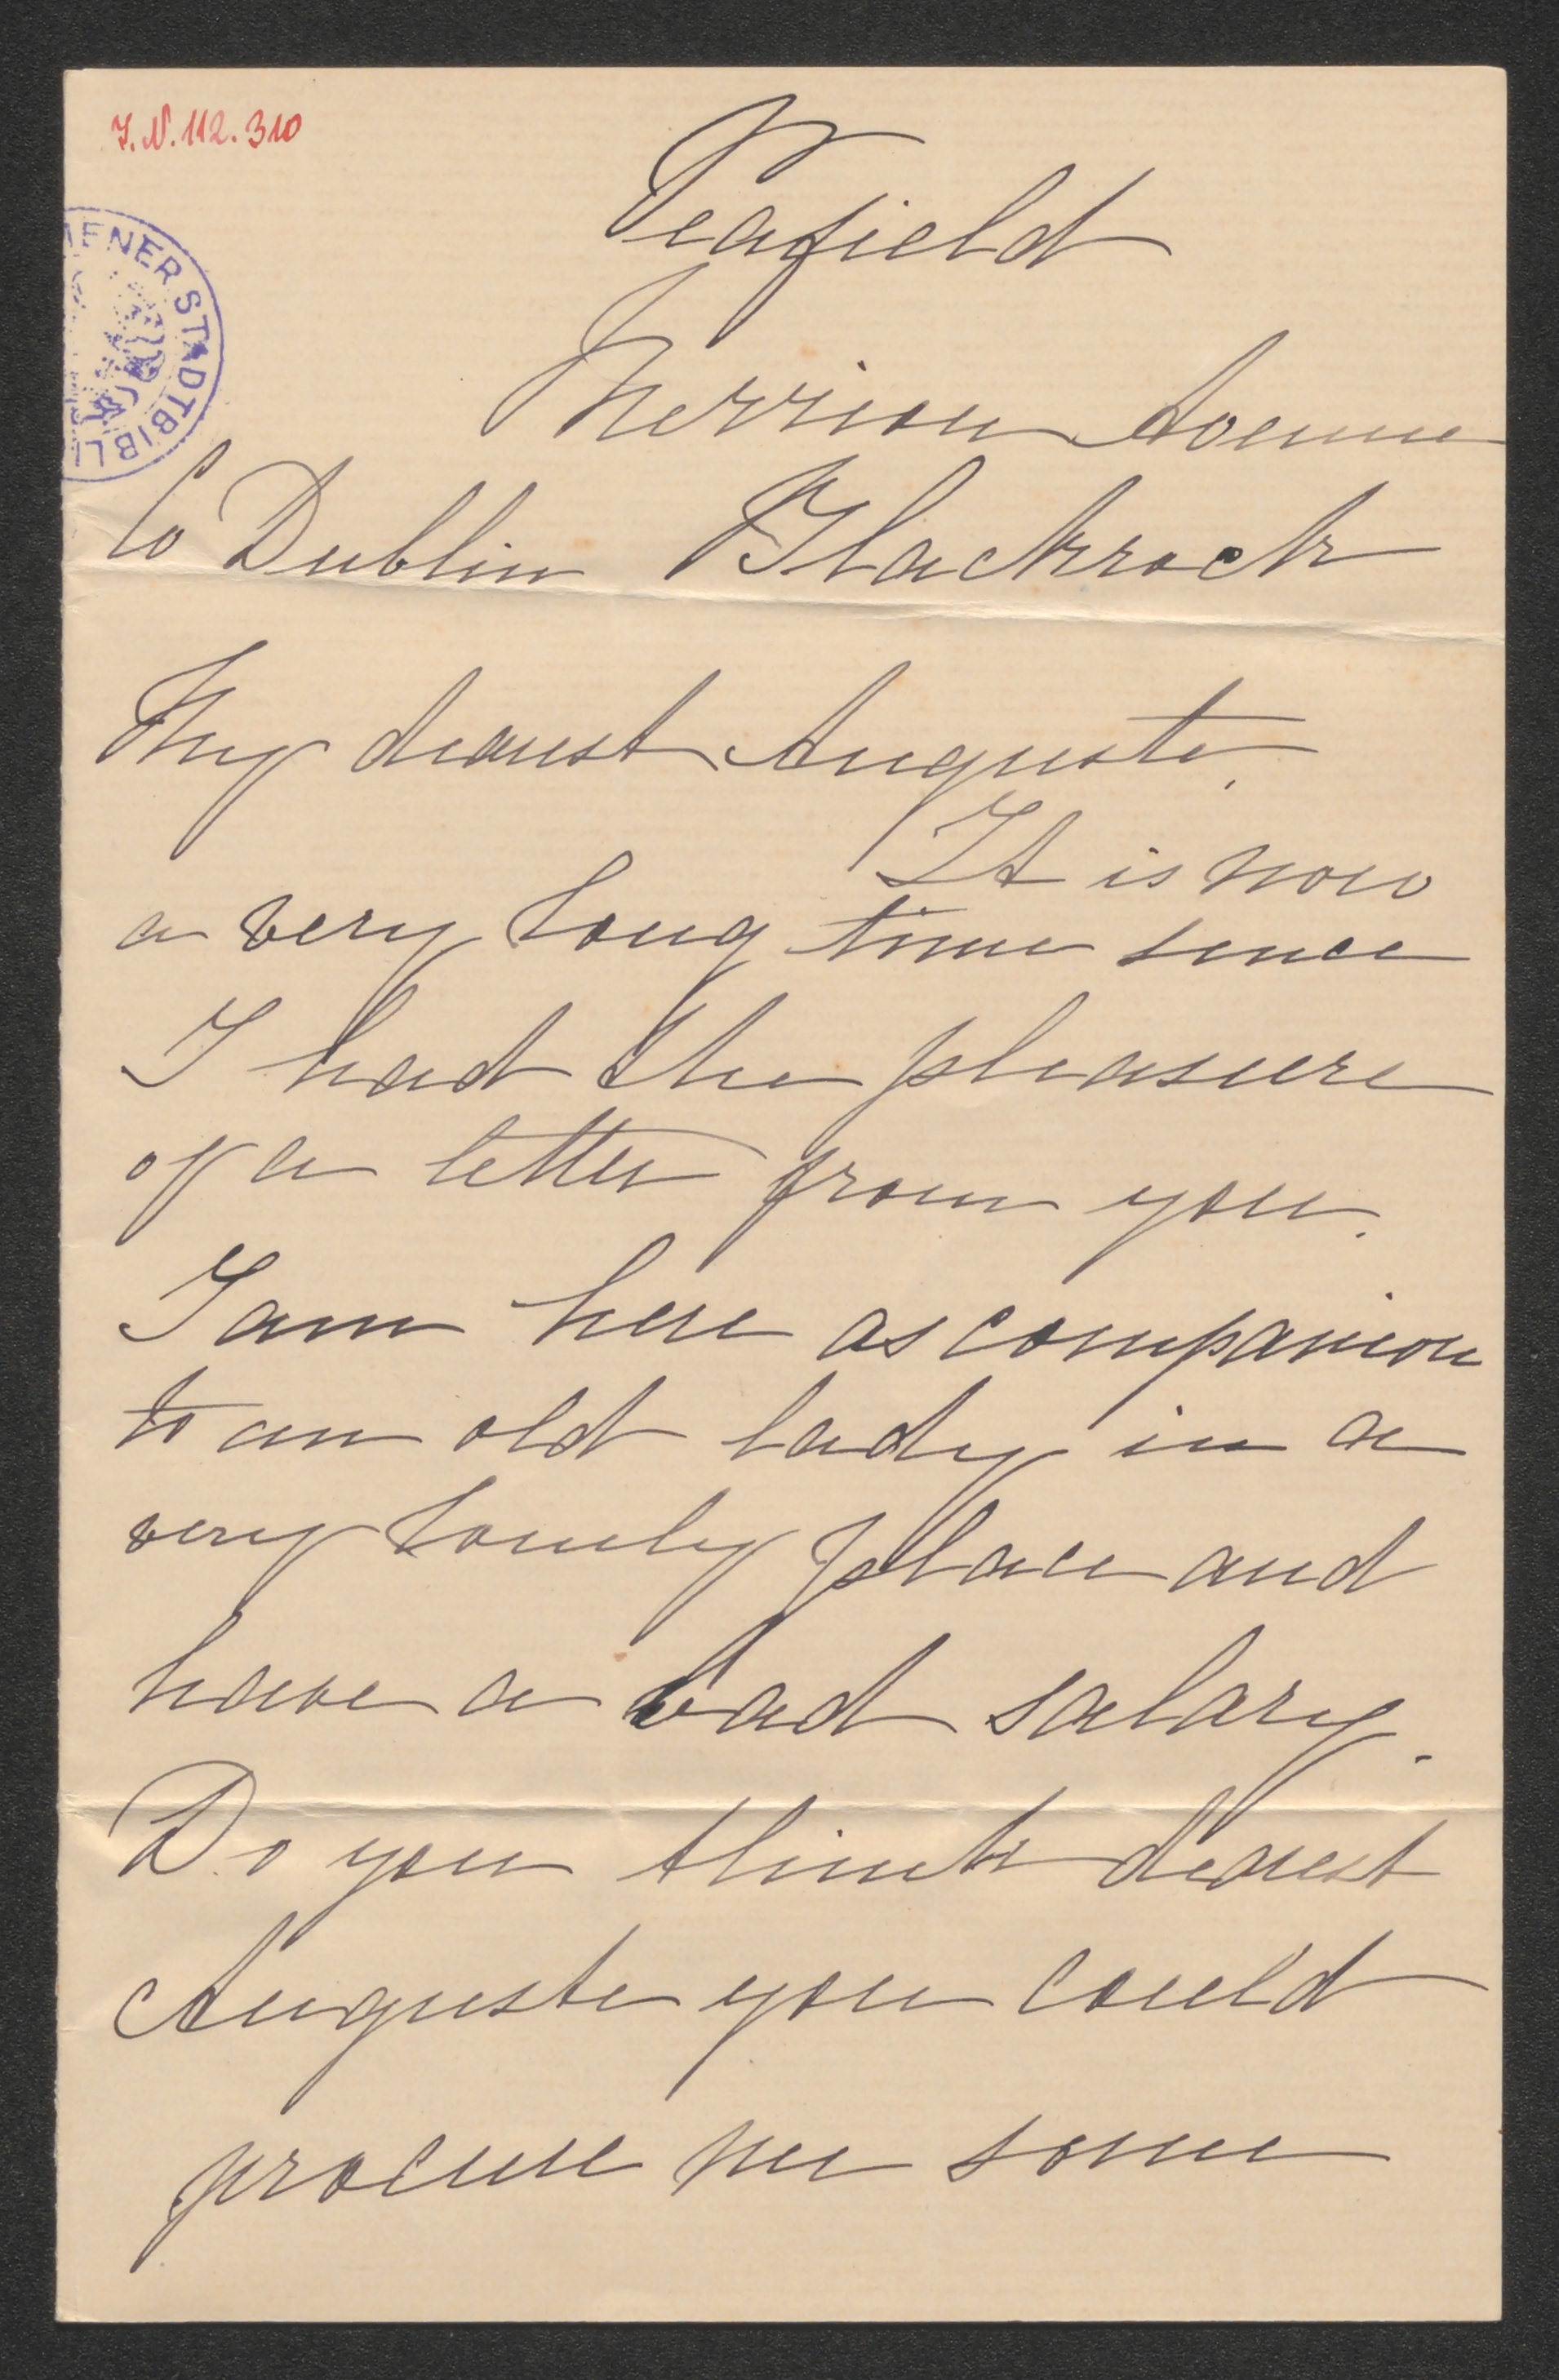 I.N. 112.310
Peafield
Merrion Avenue
Co Dublin Blackrock
My dearest Auguste,
It is now
a very long time since
I had the pleasure
of a letter from you.
I am here as companion
to an old lady in a
very lonely place and
have a bad salary.
Do you think dearest
Auguste you could
procure me some